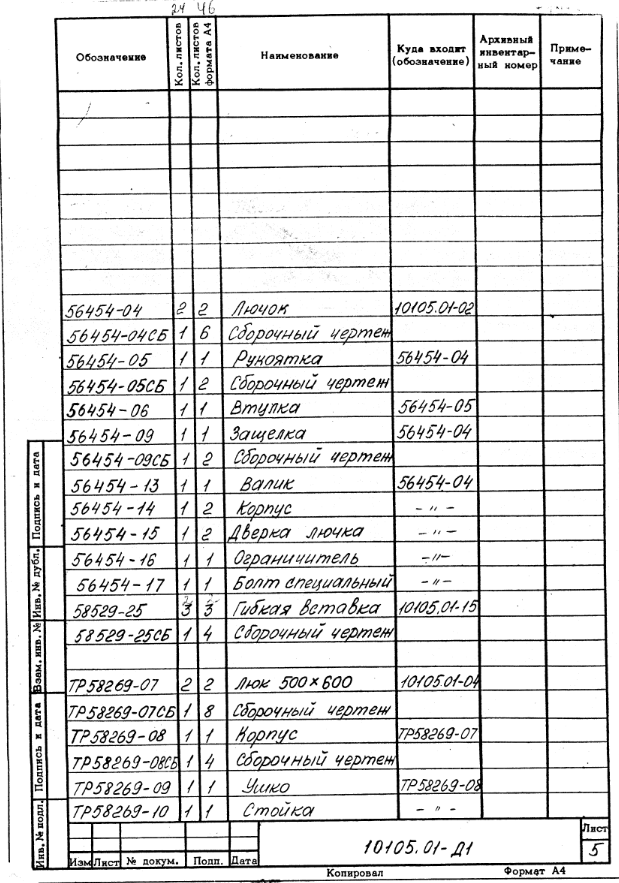 24 46
Обозначение Кол. листов Кол. листов формата А4 Наименование Куда входит (обозначение) Архивный инвентар- ный номер Приме- чание
56454-04 2 2 Лючок 10105.01-02
56454-04СБ 1 6 Сборочный чертеж
56454-05 1 1 Рукоятка 56454-04
56454-05СБ 1 2 Сборочный чертеж
56454-06 1 1 Втулка 56454-05
56454-09 1 1 Защелка 56454-04
56454-09СБ 1 2 Сборочный чертеж
56454-13 1 1 Валик 56454-04
56454-14 1 2 Корпус -"-
56454-15 1 2 Дверка лючка -"-
56454-16 1 1 Ограничитель -"-
56454-17 1 1 Болт специальный -"-
58529-25 3 3 Гибкая вставка 10105.01-15
58529-25СБ 1 4 Сборочный чертеж
ТР58269-07 2 2 Люк 500×600 10105.01-04
ТР58269-07СБ 1 8 Сборочный чертеж
ТР58269-08 1 1 Корпус ТР58269-07
ТР58269-08СБ 1 4 Сборочный чертеж
ТР58269-09 1 1 Ушко ТР58269-08
ТР58269-10 1 1 Стойка -"-
Инв. № подл. Подпись и дата Взам. инв. № Инв. № дубл. Подпись и дата
10105.01-Д1
Лист
5
Изм Лист № докум. Подп. Дата
Копировал Формат А4